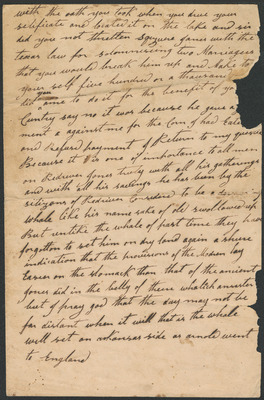 with the oath you took when you drew your
sertificate and located it on the lake and sir
did you not thretten Squyere James with the
texas law for solemnising two Marriages
that you would break him up and Make to
your self five hundred or a thousand
you came to do it for the benefit of yo
Cuntry say no it was because he gave a
ment a against me for the Corn I had
and refused payment I Return to my querie
Because it is one of importance to all men
on Redriver Jones truly with all his gatherings
and with all his sailings he has been by the
sitizens of Redriver to be a
Whale like his name sake of old swollowed up
But unlike the whale of past time they have
forgotton to set him on dry land again a shure
indication that the provisions of the Mohan lay
Easier on the stomack than that of the ancient
Jones did in the belly of them
but I pray god that the day may not be
far distant when it will that is the whale
will set on arkansas side as arnold went
to England